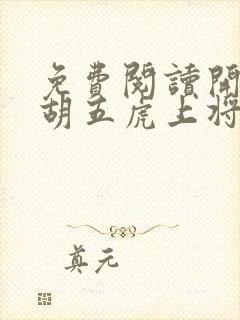 免費閱讀開
胡五虎上將
真元